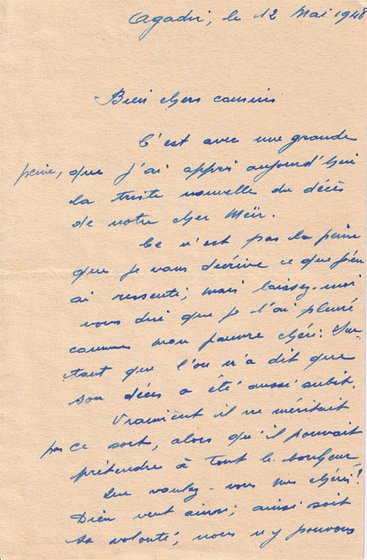 Agadir, le 12 Mai 1948
Bien chers cousins
C'est avec une grande
peine, que j'ai appri aujourd'hui
la triste nouvelle du décès
de notre cher Méir.
Ce n'est pas la peine
que je vous décrive ce que j'en
ai ressenti; mais laissez-moi
vous dire que je l'ai pleuré
comme mon pauvre chéri. Sur-
tout que l'on m'a dit que
son décès a été aussi subit.
Vraiment il ne méritait
pas ce sort, alors qu'il pouvait
prétendre à tout le bonheur
Que voulez-vous mes chéris!
Dieu veut ainsi; ainsi soit
sa volonté, nous n'y pouvons